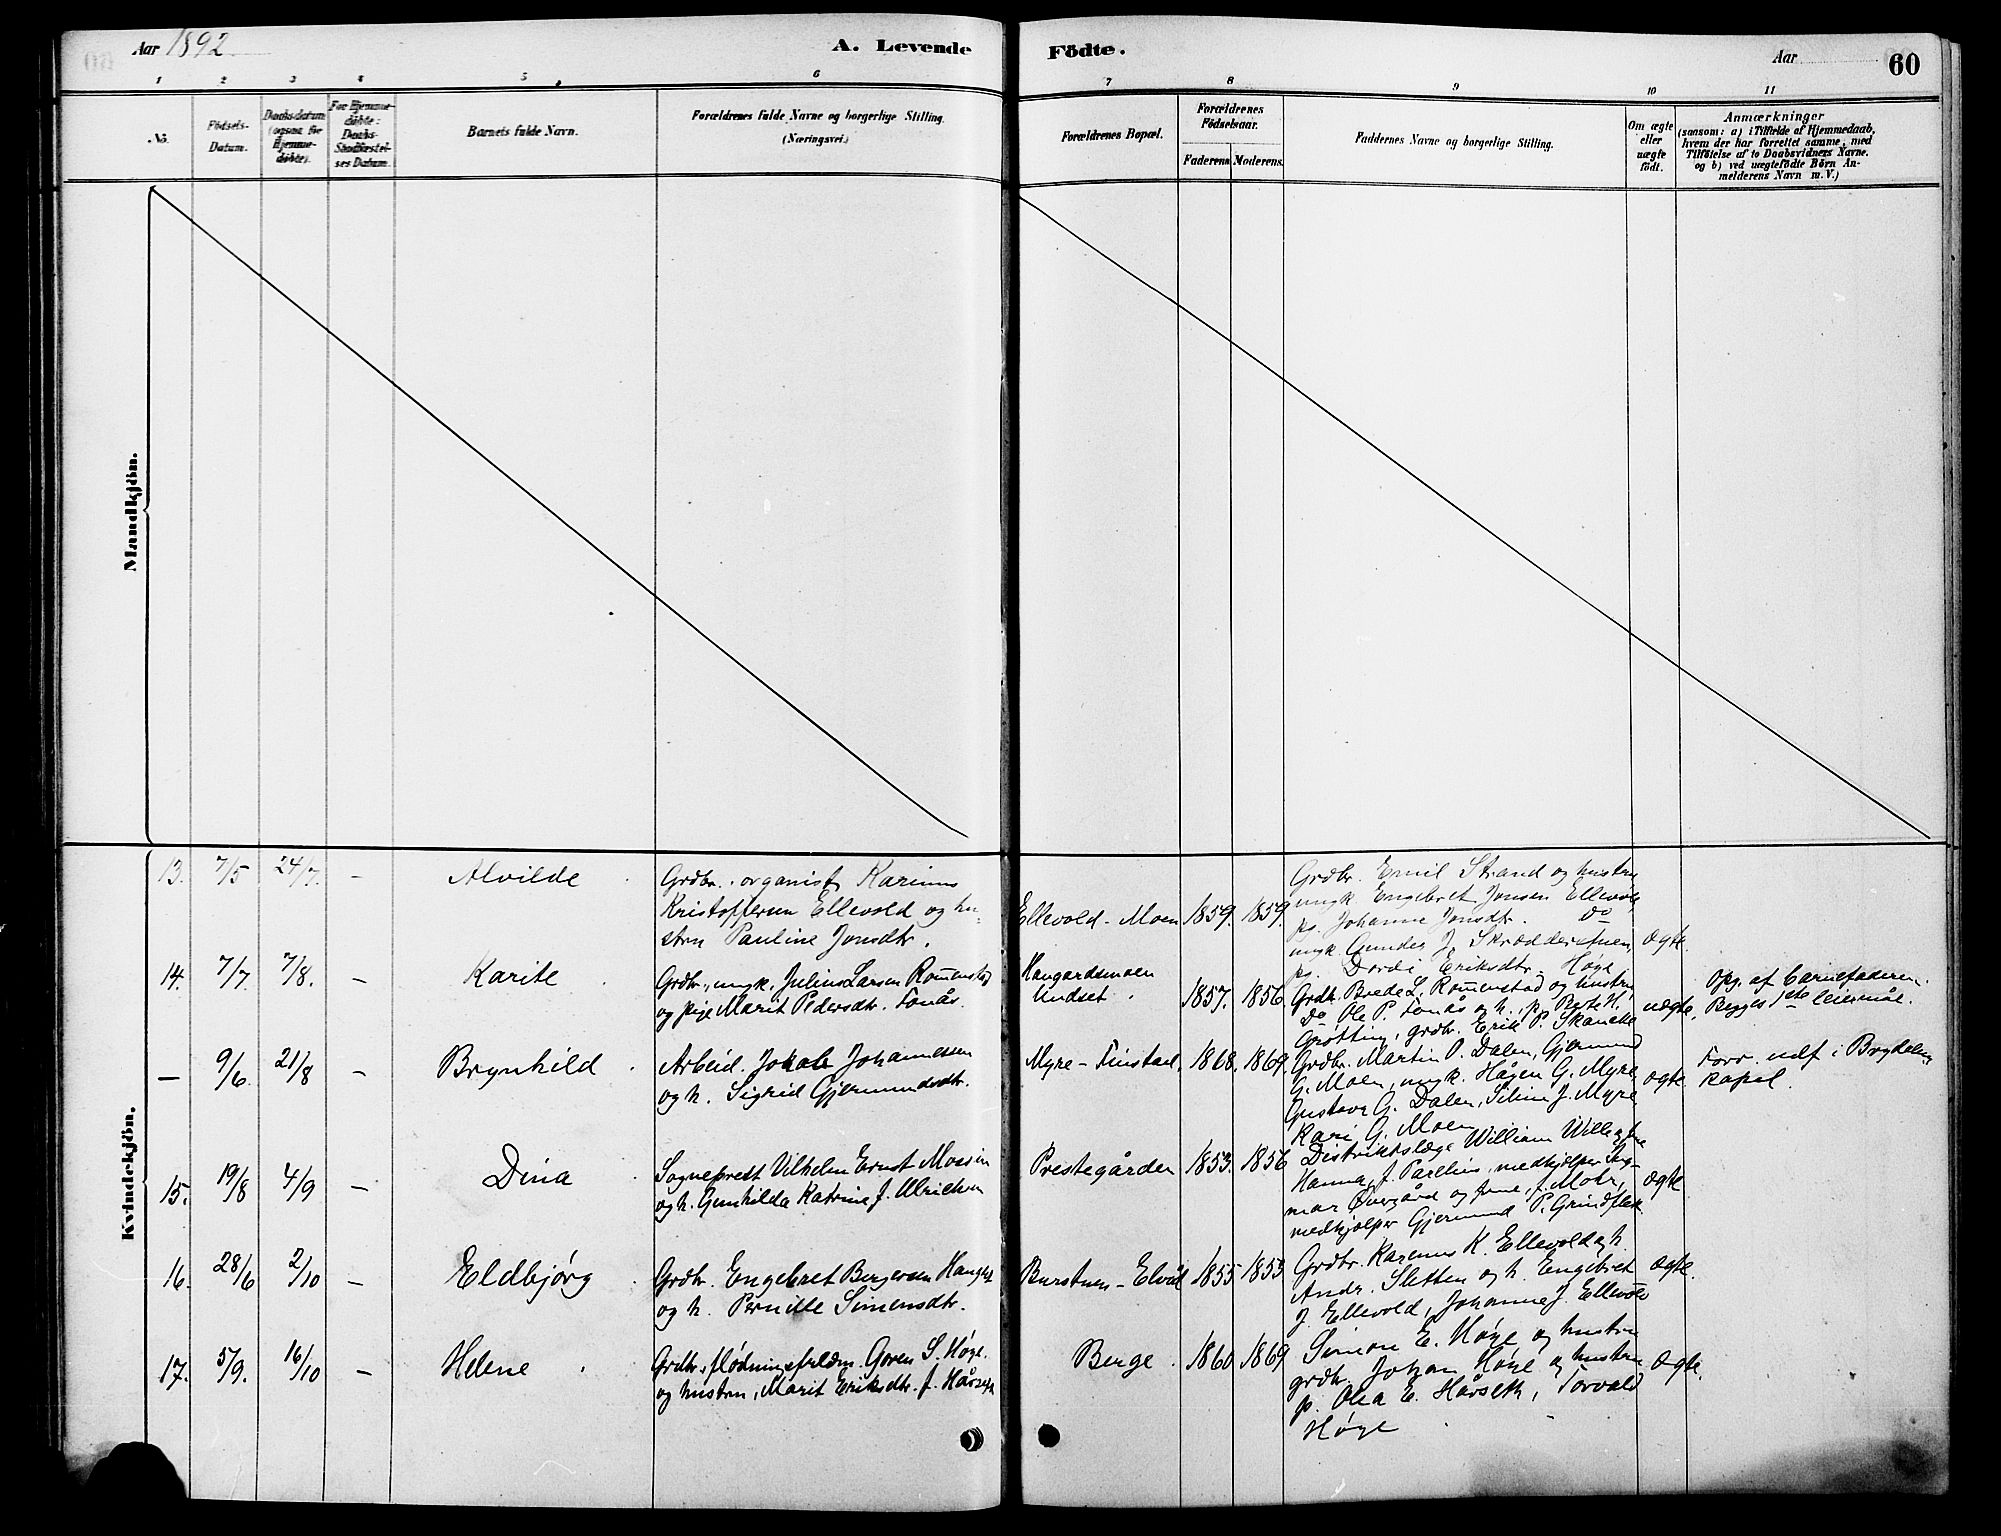 Aar 1892.
A. Levende Födte.
Aar
60
1 2 3 4 5 6 7 8 9 10 11
No.
Födsels-
Datum.
Daabsdatum
(ogsaa for
Hjemme-
döbte).
For Hjemme-
döbte:
Daabs-
Stadfæstel-
ses Datum.
Barnets fulde Navn.
Forældrenes fulde Navne og borgerlige Stilling.
(Næringsvei.)
Forældrenes Bopæl.
Forældrenes
Födselsaar.
Faderens
Moderens.
Faddernes Navne og borgerlige Stilling.
Om ægte
eller
uægte
födt.
Anmærkninger
(saasom: a) i Tilfælde af Hjemmedaab,
hvem der har forrettet samme, med
Tilföielse af to Daabsvidners Navne.
og b) ved uægtefödte Börn An-
melderens Navn m.V.)
Mandkjön.
Kvindekjön.
13. 7/5 24/7. – Alvilde
Grdbr. organist Karinus
Kristoffersen Ellevold og hu-
stru Pauline Jonsdtr.
Ellevold-Moen 1859. 1859.
Grdbr. Emil Strand og hustru
ungk Engebret Jonsen Ellevold,
pg. Johanne Jonsdtr. Do
ungk Gunder J.
pg. Dordi Eriksdtr. Høye
ægte.
14. 7/7. 7/8. – Karite
Grdbr., ungk. Julius Larsen Romenstad
og pige Marit Pedersdtr. Fonås.
Haugardsmoen
Undset. 1857. 1856.
Grdb. Brede L. Romenstad og hustru,
Do Ole P. Fonås og h., p. Berte H.
Grøtting, grdbr. Erik P. Skancke
uægte.
Opg. af barnefaderen.
Begges 1ste leiermål.
– 9/6. 21/8 – Brynhild
Arbeid. Jokab Johannessen
og h. Sigrid Gjermundsdtr.
Myre-Finstad. 1868. 1869.
Grdbr. Martin O. Dalen, Gjermund
G. Moen, ungk. Hågen G. Myre
Gustava G. Dalen, J. Myre,
Kari G. Moen
ægte
Forr. udf i
kapel.
15. 19/8 4/9 – Dina
Sogneprest Vilhelm Ernst
og h. Gunhilda Katrine f. Ulrichsen
Prestegården 1853. 1856
Distriktslæge William Wille, frue
Hanna, f. medhjælper Ing-
mar Øvergård og frue, f. Mohr,
medhjælper Gjermund P.
ægte
16. 28/6 2/10 – Eldbjørg
Grdbr. Engebret Bergersen
og h. Pernille Simensdtr.
Burstuen-Elvål 1855 1853
Grdbr. Karinus K. Ellevold og h.
Andr. Sletten og h. Engebret
J. Ellevold, Johanne J. Ellevold
ægte.
17. 5/9. 16/10 – Helene
Grdbr., Goren S. Høye.
og hustru, Marit Eriksdtr. f. Hårseth
Berge. 1860 1869
Simon E. Høye og hustru
grdbr. Johan Høye og hustru
p. Olea E. Hårseth, Torvald
Høye
ægte.